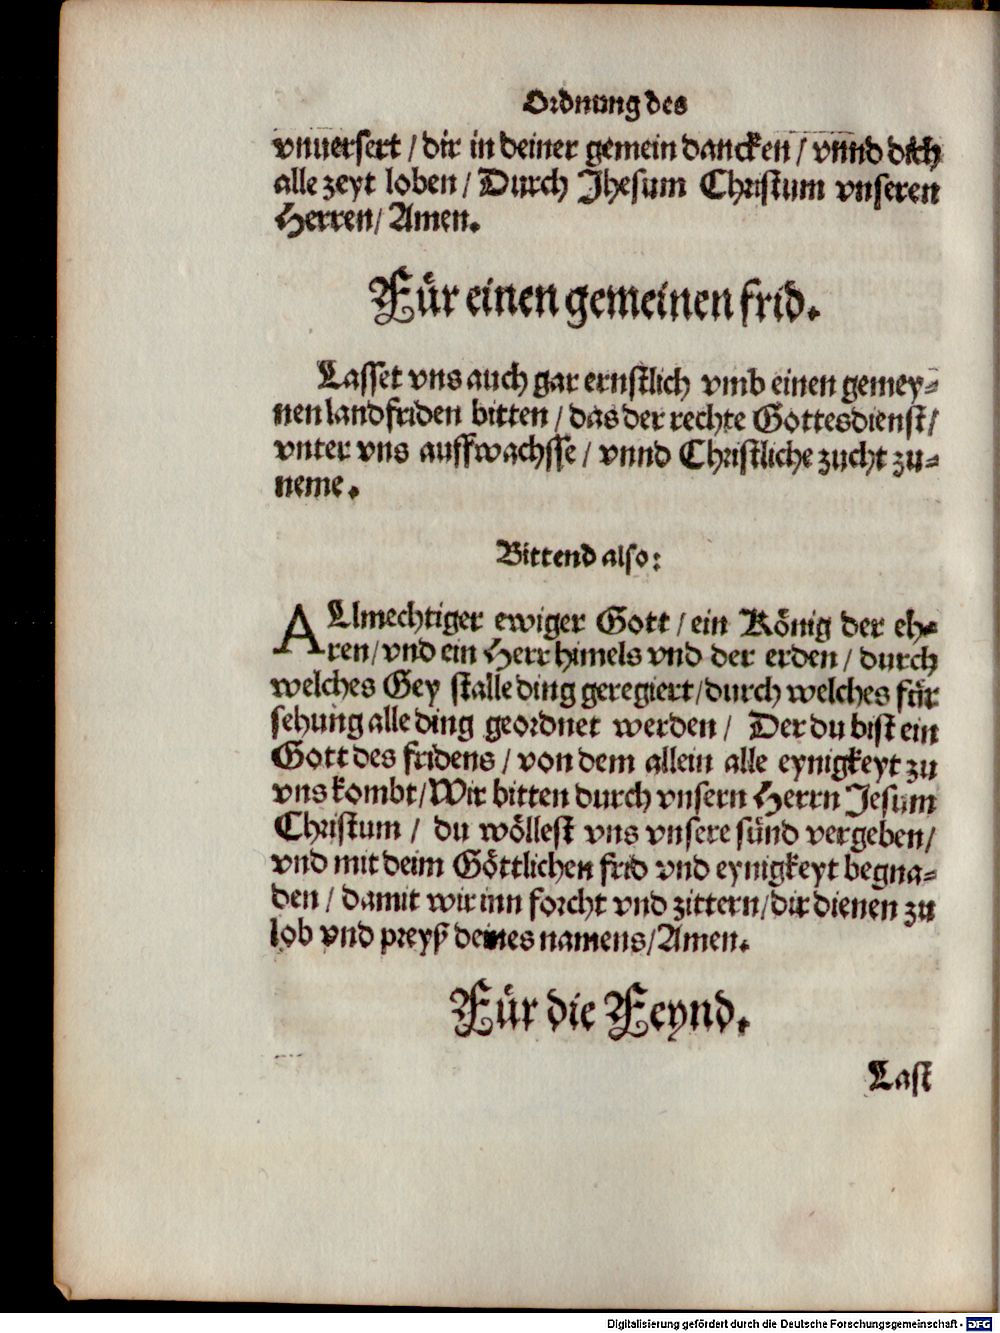 Ordnung des
vnuersert / dir in deiner gemein dancken / vnnd dich
alle zeyt loben / Durch Jhesum Christum vnseren
Herren / Amen.
Für einen gemeinen frid.
Lasset vns auch gar ernstlich vmb einen gemey-
nen landfriden bitten / das der rechte Gottesdienst /
vnter vns auffwachsse / vnnd Christliche zucht zu-
neme.
Bittend also:
ALlmechtiger ewiger Gott / ein König der eh-
ren / vnd ein Herr himels vnd der erden / durch
welches Gey st alle ding geregiert / durch welches für
sehung alle ding geordnet werden / Der du bist ein
Gott des fridens / von dem allein alle eynigkeyt zu
vns kombt / Wir bitten durch vnsern Herrn Jesum
Christum / du wöllest vns vnsere sünd vergeben /
vnd mit deim Göttlichen frid vnd eynigkeyt begna-
den / damit wir inn forcht vnd zittern / dir dienen zu
lob vnd preyß deines namens / Amen.
Für die Feynd.
Last
Digitalisierung gefördert durch die Deutsche Forschungsgemeinschaft - DFG